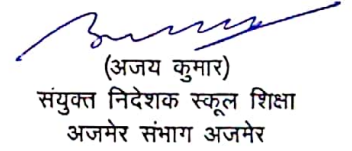 (अजय कुमार)
संयुक्त निदेशक स्कूल शिक्षा
अजमेर संभाग अजमेर